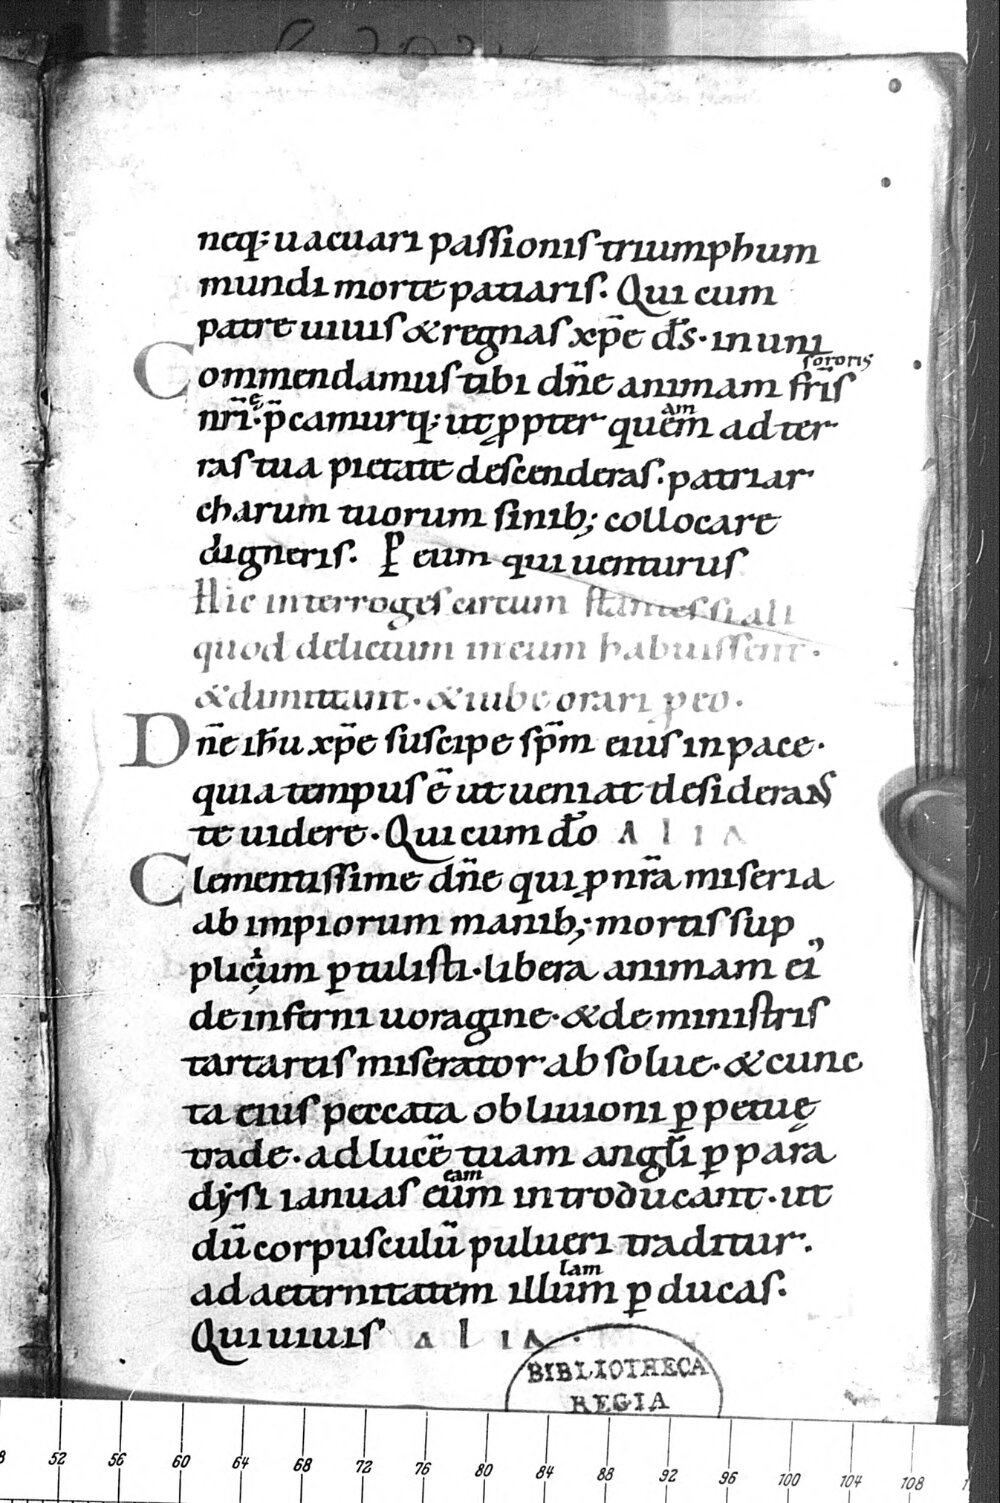 neq; uacuari passionis triumphum
mundi morte patiaris. Qui cum
patre uiuis & regnas xp̄e d̄s. in uni
sororis
Commendamus tibi dn̄e animam fr̄is
nr̄i. p̄camurq; ut ꝓpter quem ad ter
am
ras tua pietate descenderas. patriar
charum tuorum sinib; collocare
digneris. P̱ eum qui uenturus
Hic interroges circum stantes si ali
quod delictum in eum habuissent.
& dimittant. & iube orari p eo.
Dn̄e ih̄u xp̄e suscipe sp̄m eius in pace.
quia tempus ē ut ueniat desiderans
te uidere. Qui cum d̄o ALIA
Clementissime dn̄e qui ꝓ nr̄a miseria
ab impiorum manib; mortis sup
plicium ꝑtulisti. libera animam ei᾿
de inferni uoragine. & de ministris
tartareis miserator absolue. & cunc
ta eius peccata obliuioni ꝑpetuę
trade. ad lucē tuam angl̄i ꝑ para
eam
dysi ianuas eum introducant. ut
dū corpusculū pulueri traditur.
lam
ad aeternitatem illum ꝑducas.
Qui uiuis ALIA.
BIBLIOTHECA
REGIA
52 56 60 64 68 72 76 80 84 88 92 96 100 104 108